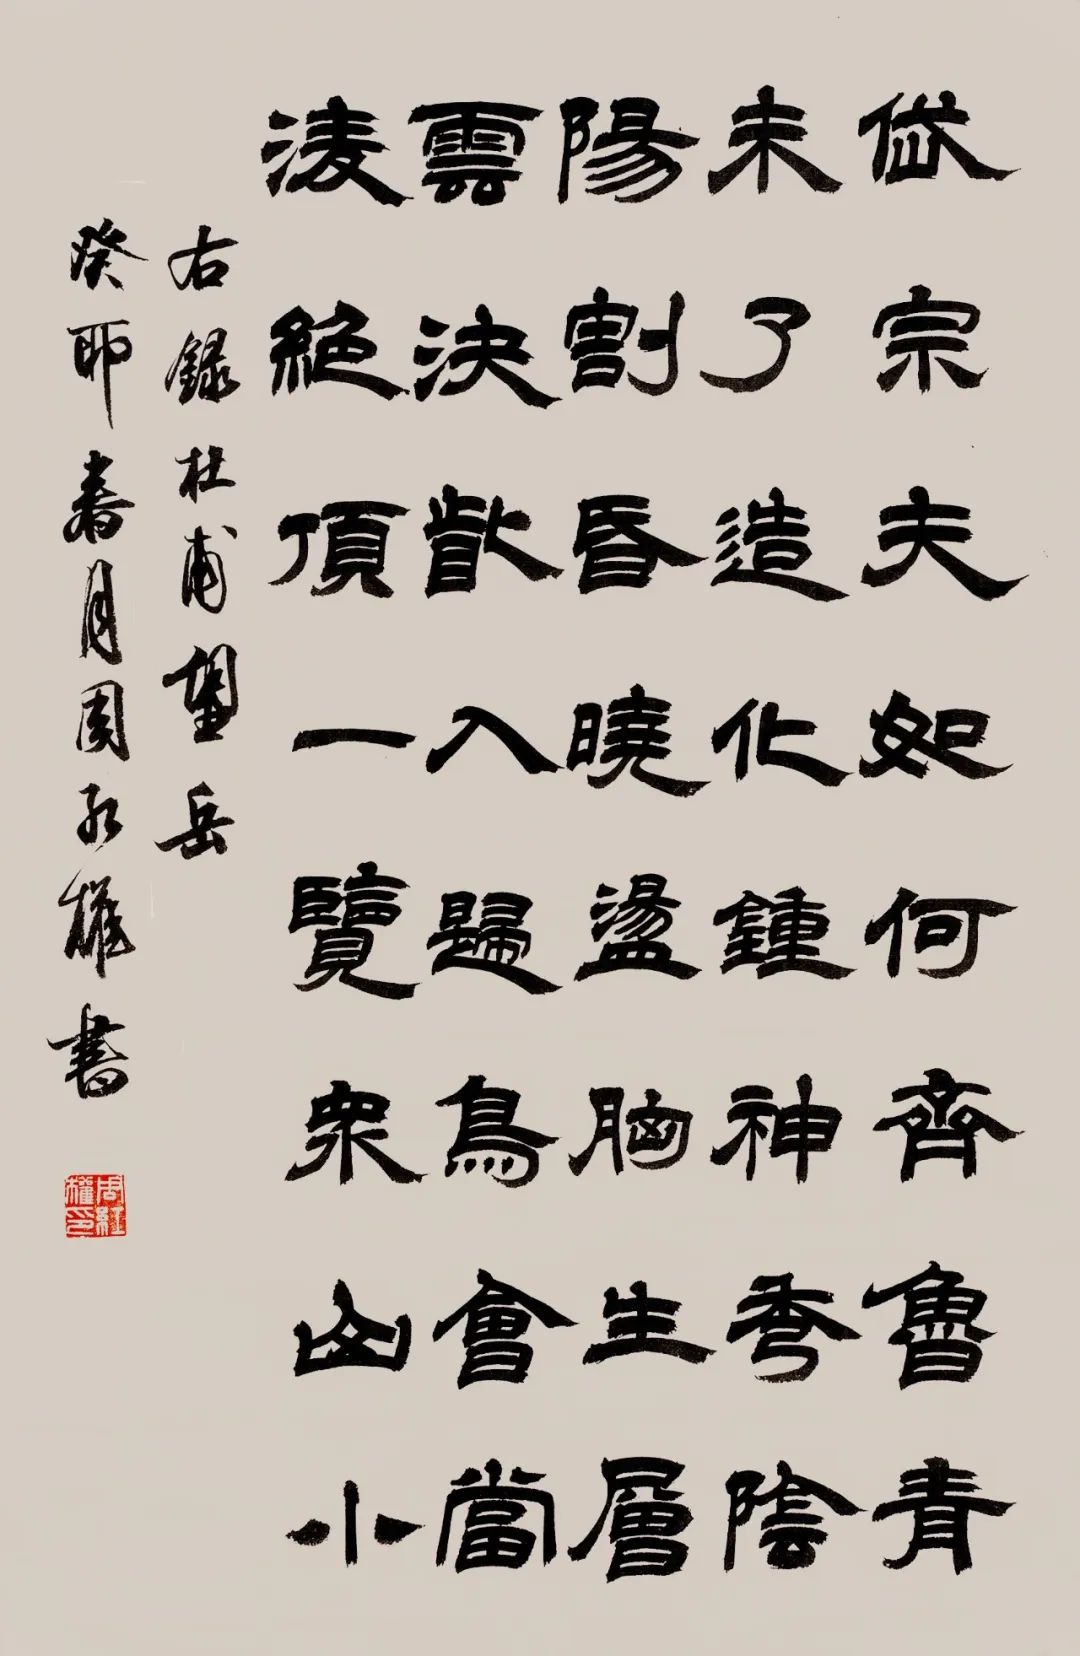 岱宗夫如何齊魯青
未了造化鍾神秀陰
陽割昏曉盪胸生層
雲決眥入歸鳥會當
淩絕頂一覽眾山小
右録杜甫望岳
癸卯春月周红權書
周紅權印